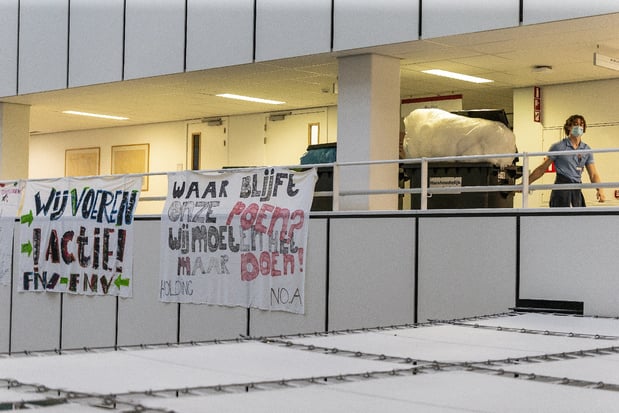 WIJ VOEREN
!ACTIE!
FNV-FNV
WAAR BLIJFT
ONZE POEN?
WIJ MOETEN HET
MAAR DOEN!
HOLDING N.O.A